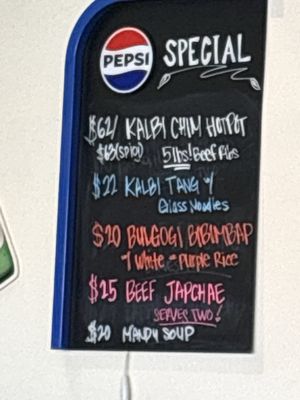 PEPSI
SPECIAL
$62/ KALBI CHIM HOTPOT
$63(spicy) 5lbs! Beef Ribs
$22 KALBI TANG w/
Glass Noodles
$20 BULGOGI BIBIMBAP
w/ White or Purple Rice
$25 BEEF JAPCHAE
SERVES TWO!
$20 MANDU SOUP